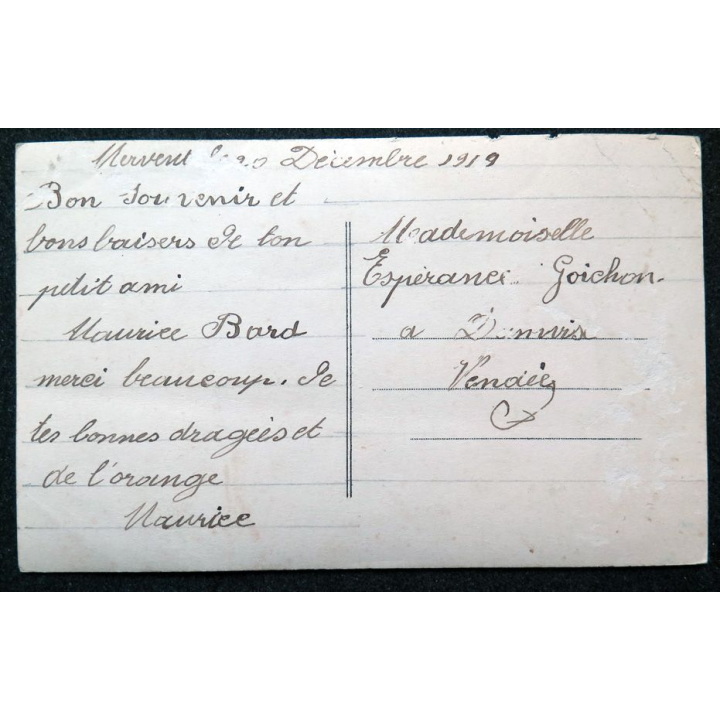 Mervent 20 Décembre 1919
Bon Souvenir et
bons baisers de ton
petit ami
Maurice Bard
merci beaucoup. de
tes bonnes dragées et
de l'orange
Maurice
Mademoiselle
Espérance Goichon.
a
Vendée